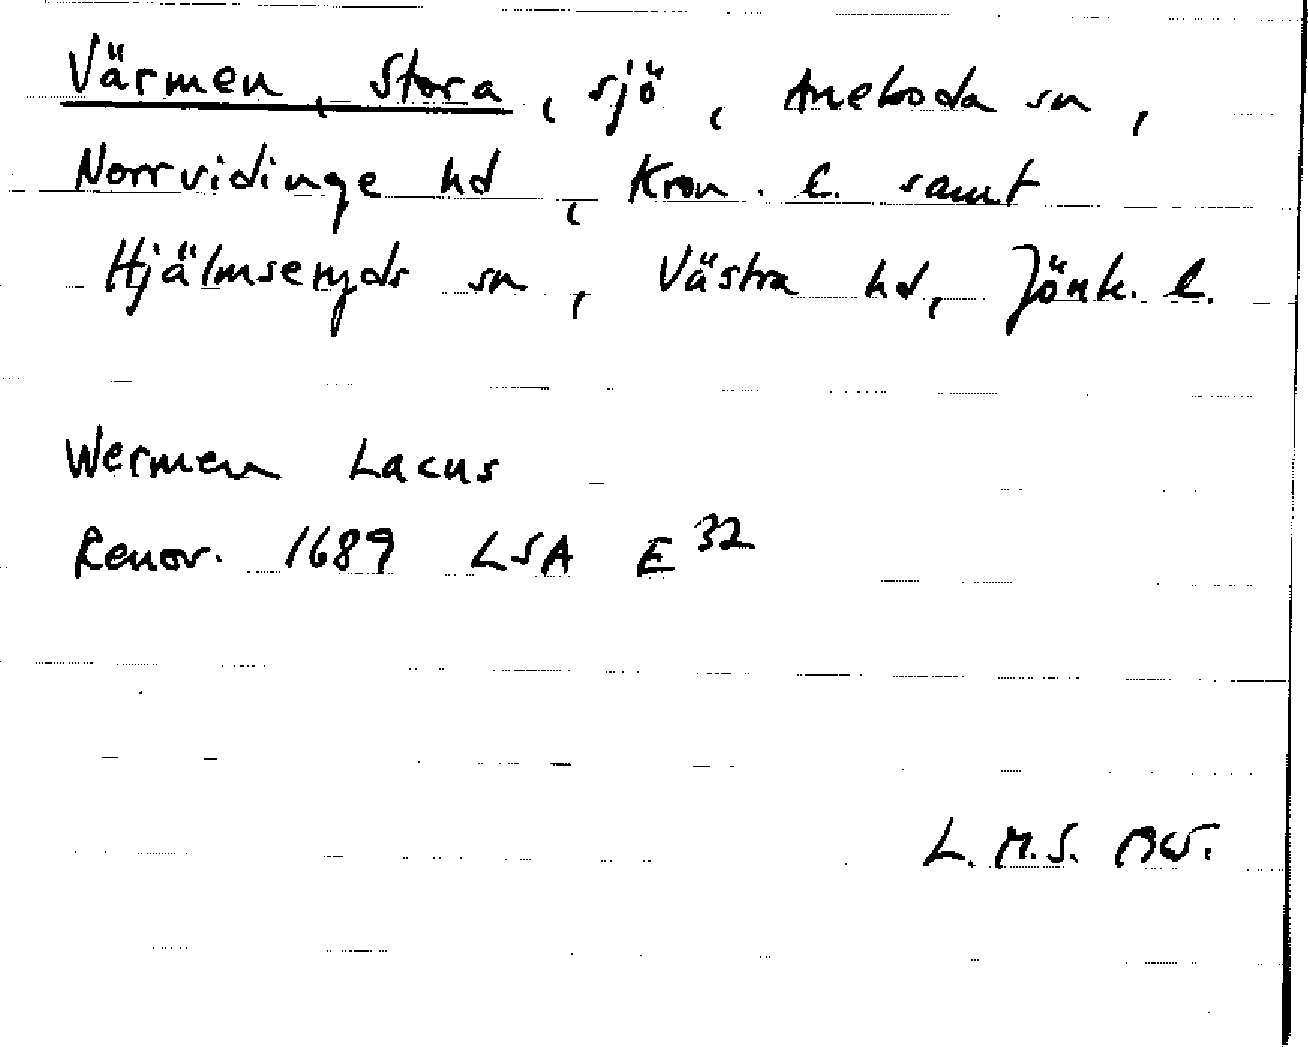 Värmen, Stora, sjö, Aneboda sn,
Norrvidinge hd, Kron. l. samt
Hjälmseryds sn, Västra hd, Jönk. l.
Wermen Lacus
Renov. 1689 LSA E 32
L. M. S.